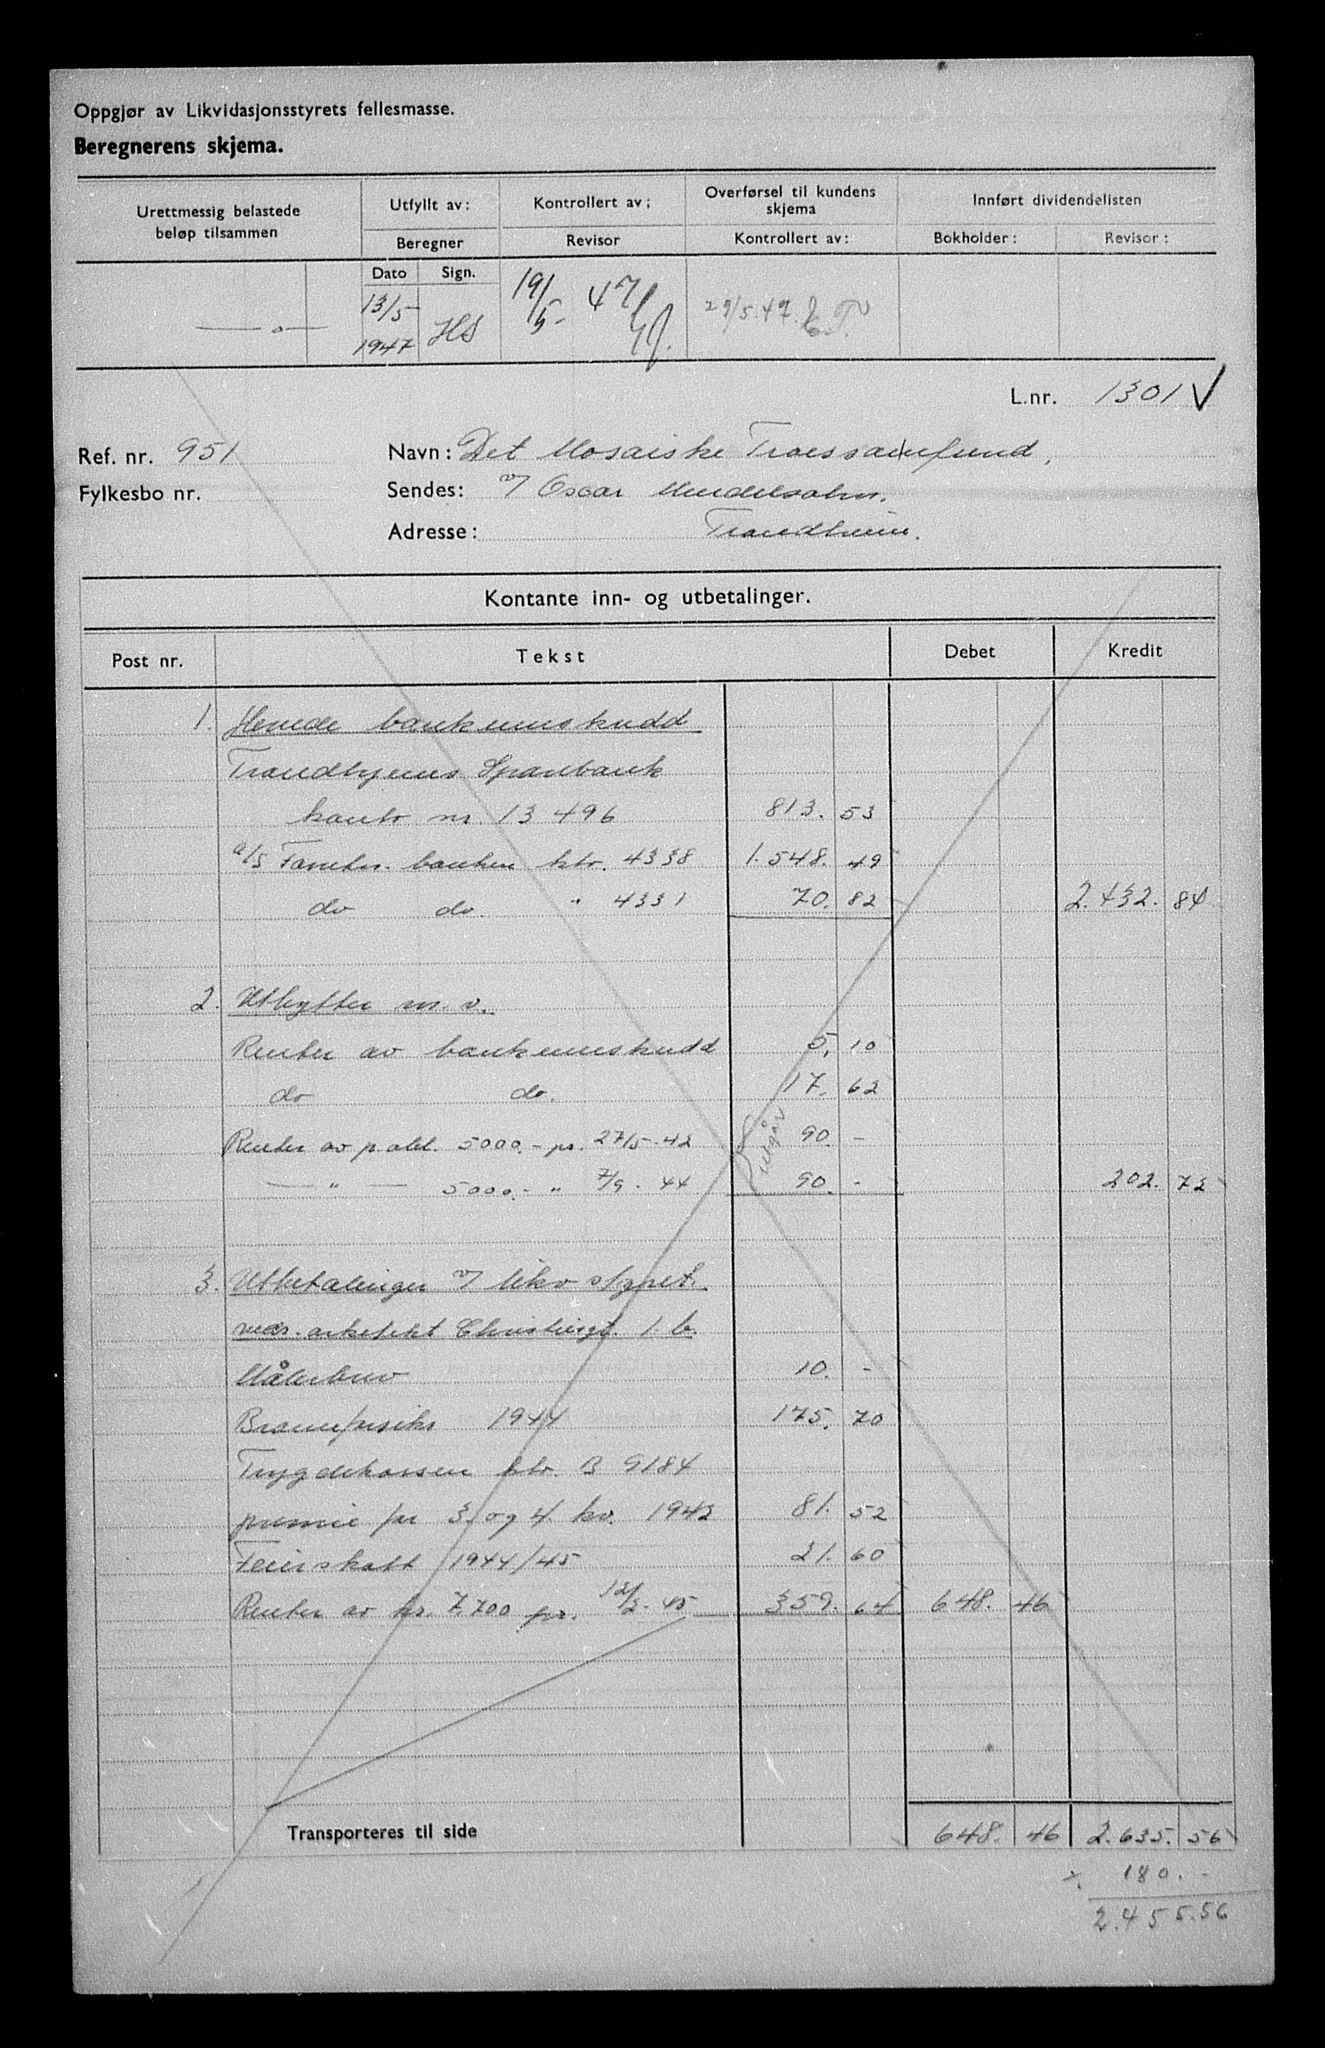 Oppgjør av Likvidasjonsstyrets fellesmasse.
Beregnerens skjema.
Urettmessig belastede beløp tilsammen
Utfylt av:
Beregner
Dato Sign.
13/5 1947 HS
Kontrollert av;
Revisor
19/5- 47
Overførsel til kundens skjema
Kontrollert av:
29/5.47.
Innført dividendelisten
Bokholder: Revisor:
— o —
L.nr. 1301 √
Ref. nr. 951 Navn: Det Mosaiske Troessamfund,
Fylkesbo nr. Sendes: v/ Oscar Mendelsohn.
Adresse: Trondheim.
Kontante inn- og utbetalinger.
Post nr. Tekst Debet Kredit
1. Hevede bankinnskudd
Trondhjems Sparebank
konto nr. 13 496 813. 53
a/s banken kto. 4338 1.548. 49
do do. " 4331 70. 82 2.432. 84
2. Utbytter m. v.
Renter av bankinnskudd 5. 10
do do. 17. 62
Renter av p.obl. 5000.- pr. 27/5-42 90. -
— " — 5000.- " 7/9 - 44 90. - 202. 72
utgår
3. Utbetalinger v/ likv styret.
vedr. arkitekt 1. b.
Målerbrev 10. -
Brannforsikr 1944 175. 70
Trygdekassen kto. B 9184
premie for 3. og 4. kv. 1942 81. 52
Feierskatt 1944/45 21. 60
Renter av kr. 7.700 pr. 12/2-45 359. 64 648. 46
Transporteres til side 648. 46 2.635. 56
÷. 180. -
2.455.56